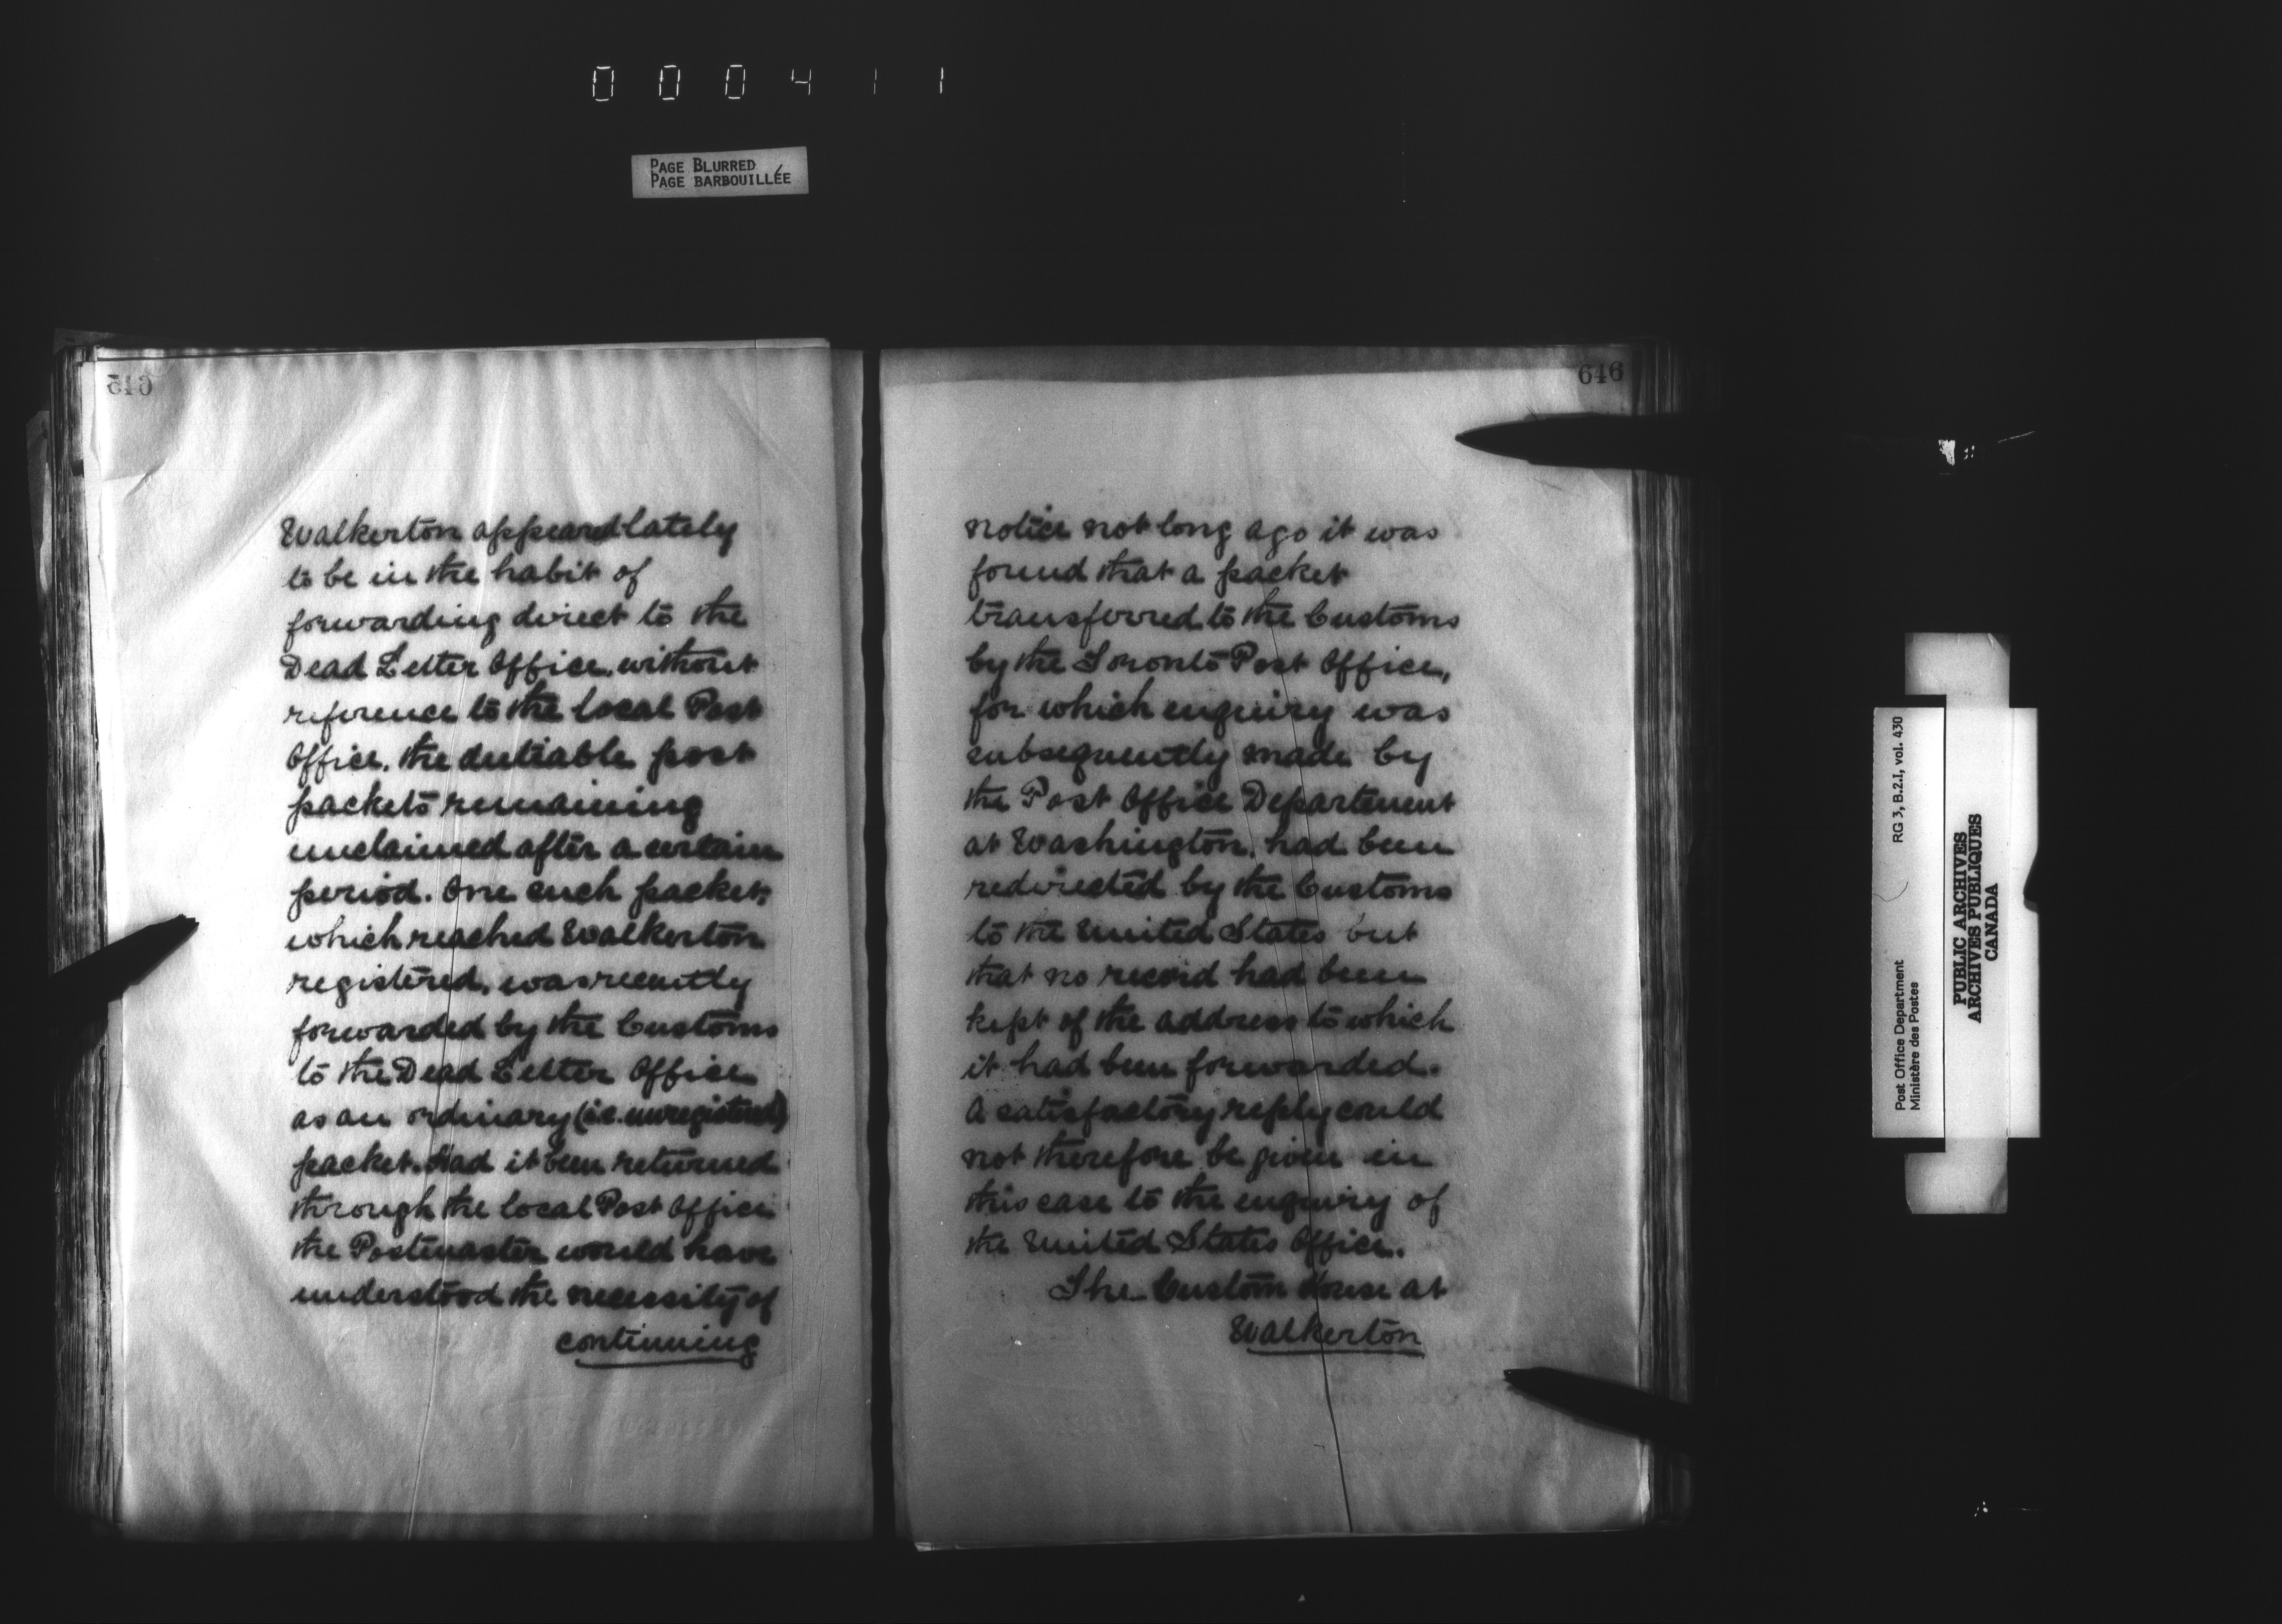 000411
PAGE BLURRED
PAGE BARBOUILLÉE
Walkerton appeared lately
to be in the habit of
forwarding direct to the
Dead Letter Office, without
reference to the local Post
Office, the dutiable post
packets remaining
unclaimed after a certain
period. One such packet,
which reached Walkerton
registered, was recently
forwarded by the Customs
to the Dead Letter Office
as an ordinary (i.e. unregistered)
packet. Had it been returned
through the local Post Office
the Postmaster would have
understood the necessity of
continuing
646
notice not long ago it was
found that a packet
transferred to the Customs
by the Toronto Post Office,
for which enquiry was
subsequently made by
the Post Office Department
at Washington, had been
redirected by the Customs
to the United States but
that no record had been
kept of the address to which
it had been forwarded.
A satisfactory reply could
not therefore be given in
this case to the enquiry of
the United States Office.
The Custom House at
Walkerton
Post Office Department
Ministère des Postes
RG 3, B.2.I, vol. 430
PUBLIC ARCHIVES
ARCHIVES PUBLIQUES
CANADA